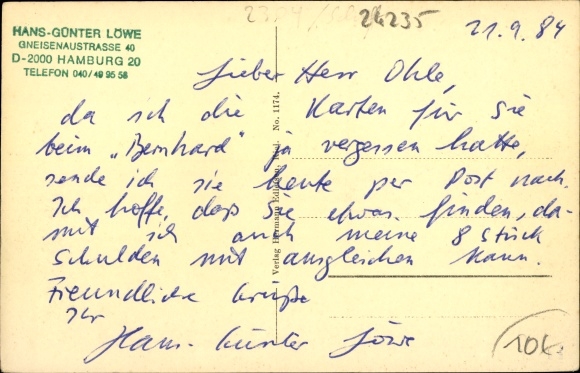 HANS-GÜNTER LÖWE
GNEISENAUSTRASSE 40
D-2000 HAMBURG 20
TELEFON 040/49 95 58
24235
21.9.84
Lieber Herr Ohle,
da ich die Karten für Sie
beim „Bernhard" ja vergessen hatte,
sende ich sie heute per Post nach.
Ich hoffe, dass Sie etwas finden, da-
mit ich auch meine 8 Stück
Schulden mit ausgleichen kann.
Freundliche Grüße
Ihr
Hans-Günter Löwe
Verlag Hermann No. 1174.
10%